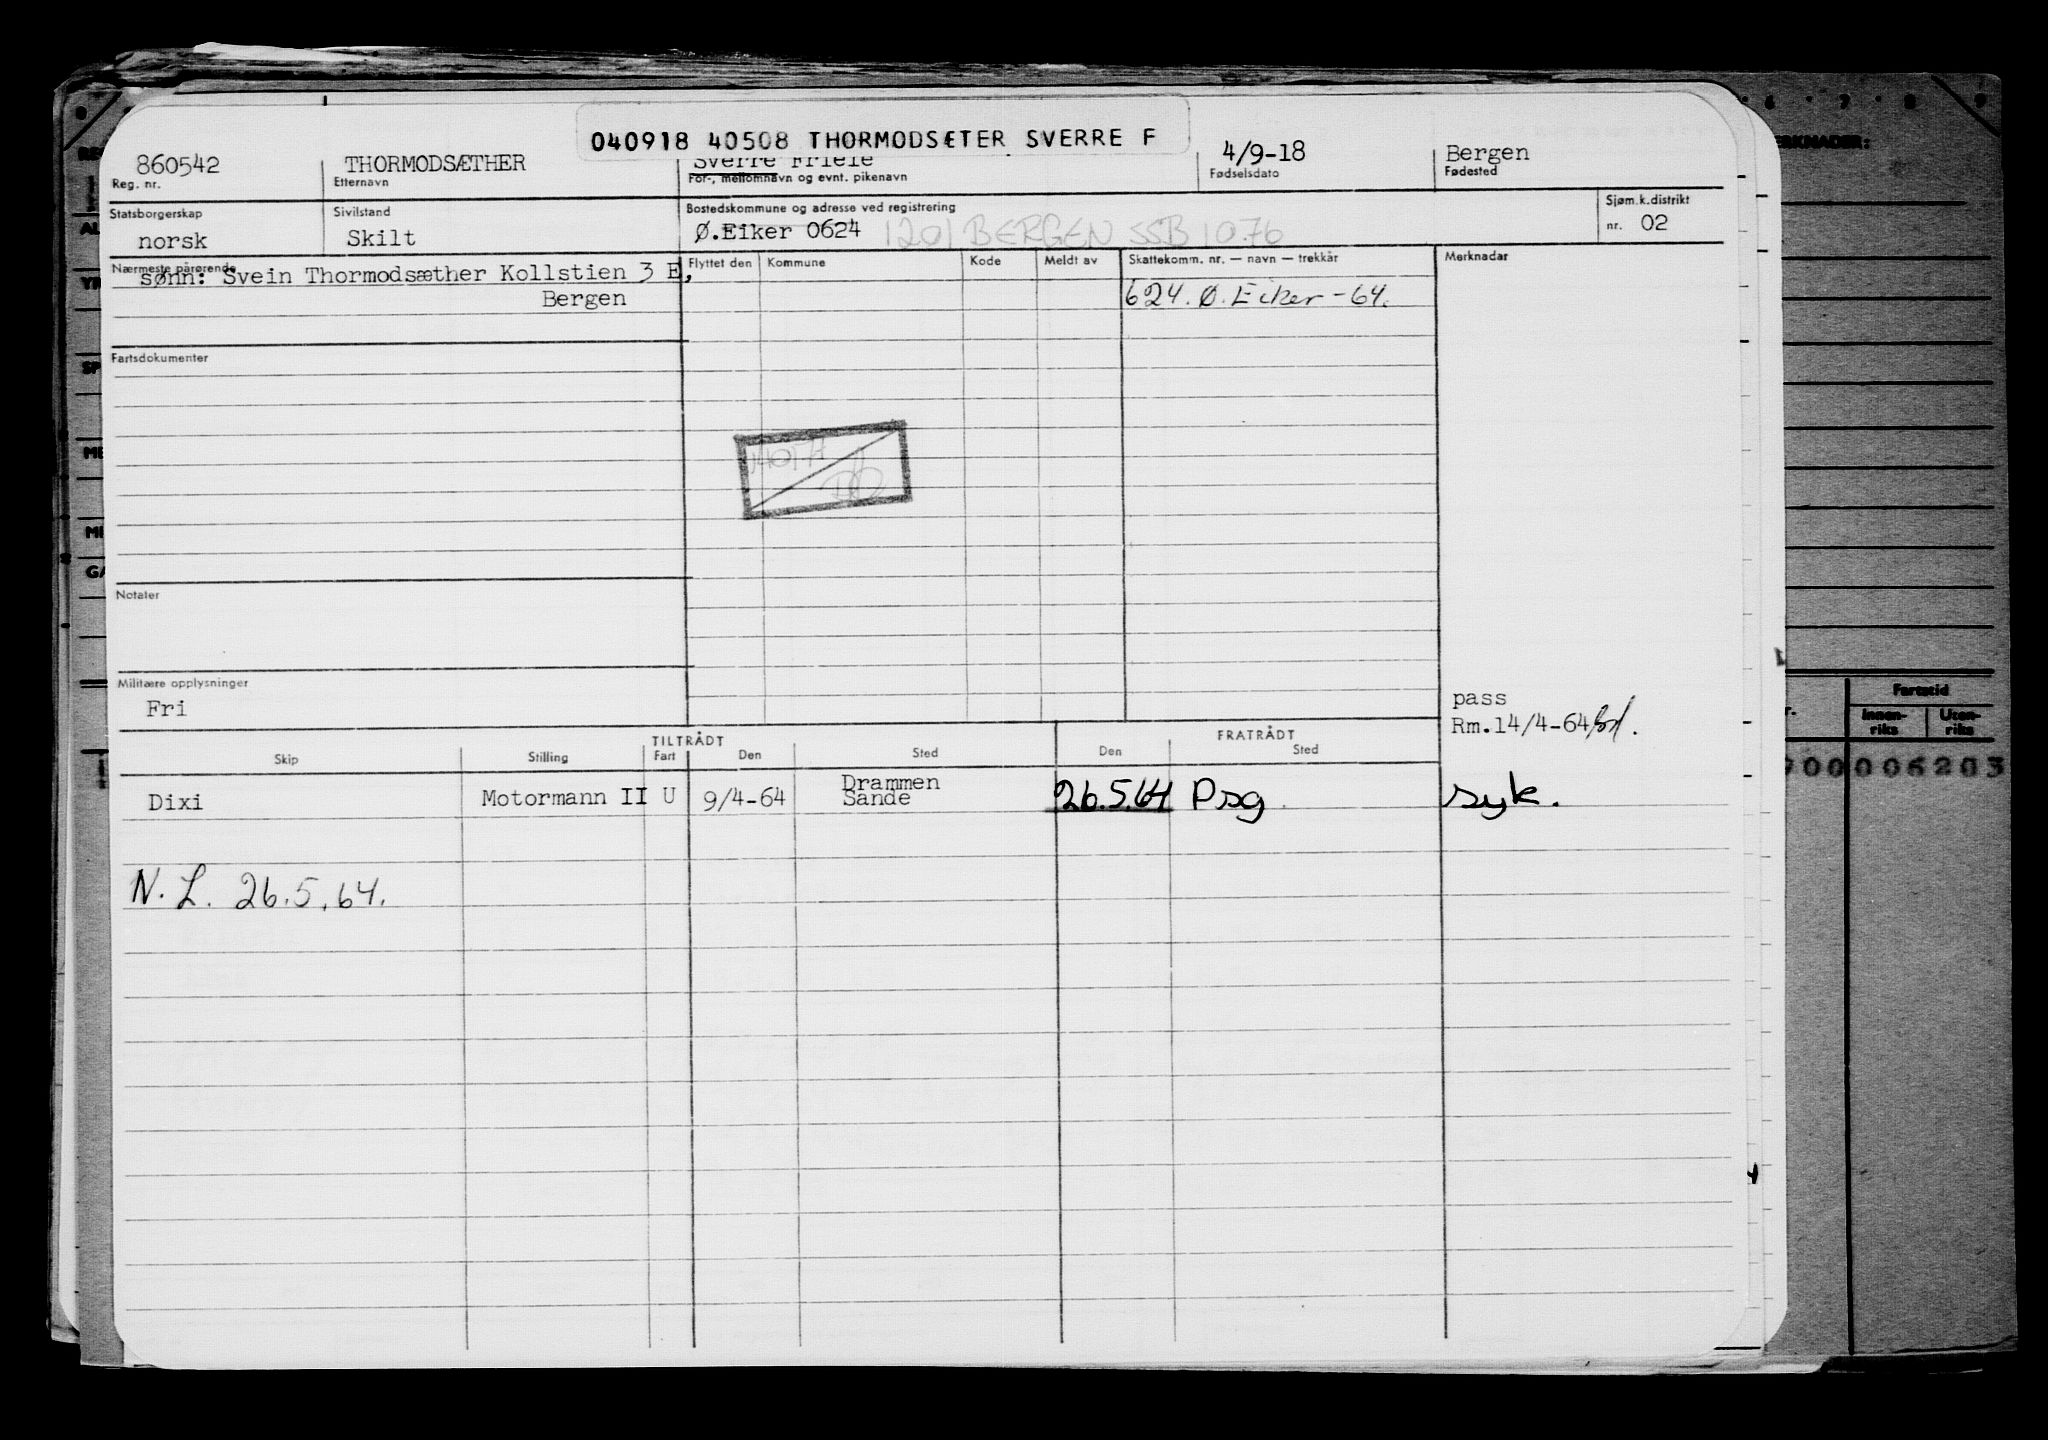 040918 40508 THORMODSÆTER SVERRE F
860542 THORMODSÆTHER Sverre Friele 4/9-18 Bergen
Reg. nr. Etternavn For-, mellomnavn og evnt. pikenavn Fødselsdato Fødested
Statsborgerskap Sivilstand Bostedskommune og adresse ved registrering Sjøm.k.distrikt
norsk Skilt Ø.Eiker 0624 1201 BERGEN SSB 10.76 nr. 02
Nærmeste pårørende Flyttet den Kommune Kode Meldt av Skattekomm. nr. — navn — trekkår Merknadar
sønn: Svein Thormodsæther Kollstien 3 E,
Bergen 624. Ø. Eiker -64.
Fartsdokumenter
Notater
Militære opplysninger
Fri
pass
Rm.14/4-64
TILTRÅDT FRATRÅDT
Skip Stilling Fart Den Sted Den Sted
Drammen
Dixi Motormann II U 9/4-64 Sande 26.5.64 Psg. syk.
N. L. 26.5.64.
6 7 8 9
ERKNADER:
Fartstid
Innen-
riks
Uten-
riks
006203